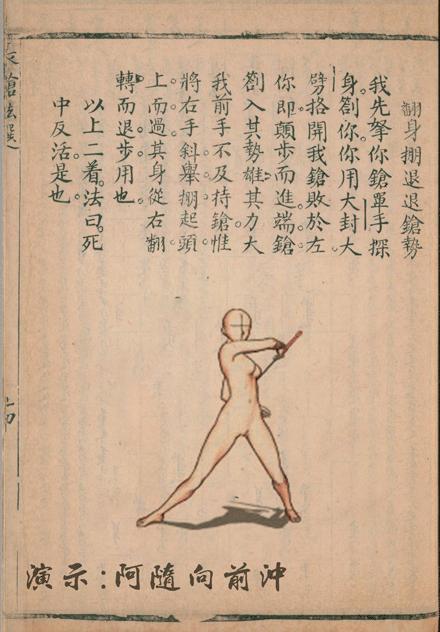 翻身掤退退鎗勢
我先拏你鎗單手探
身劄你你用大封大
劈挌開我鎗敗於左
你即顛步而進端鎗
劄入其勢雄其力大
我前手不及持鎗惟
將右手斜舉掤起頭
上而過其身從右翻
轉而退步用也
以上二着法曰死
中反活是也
鎗法選
演示:阿隨向前沖